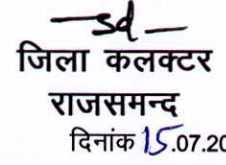 sd
जिला कलक्टर
राजसमन्द
दिनांक 15.07.20